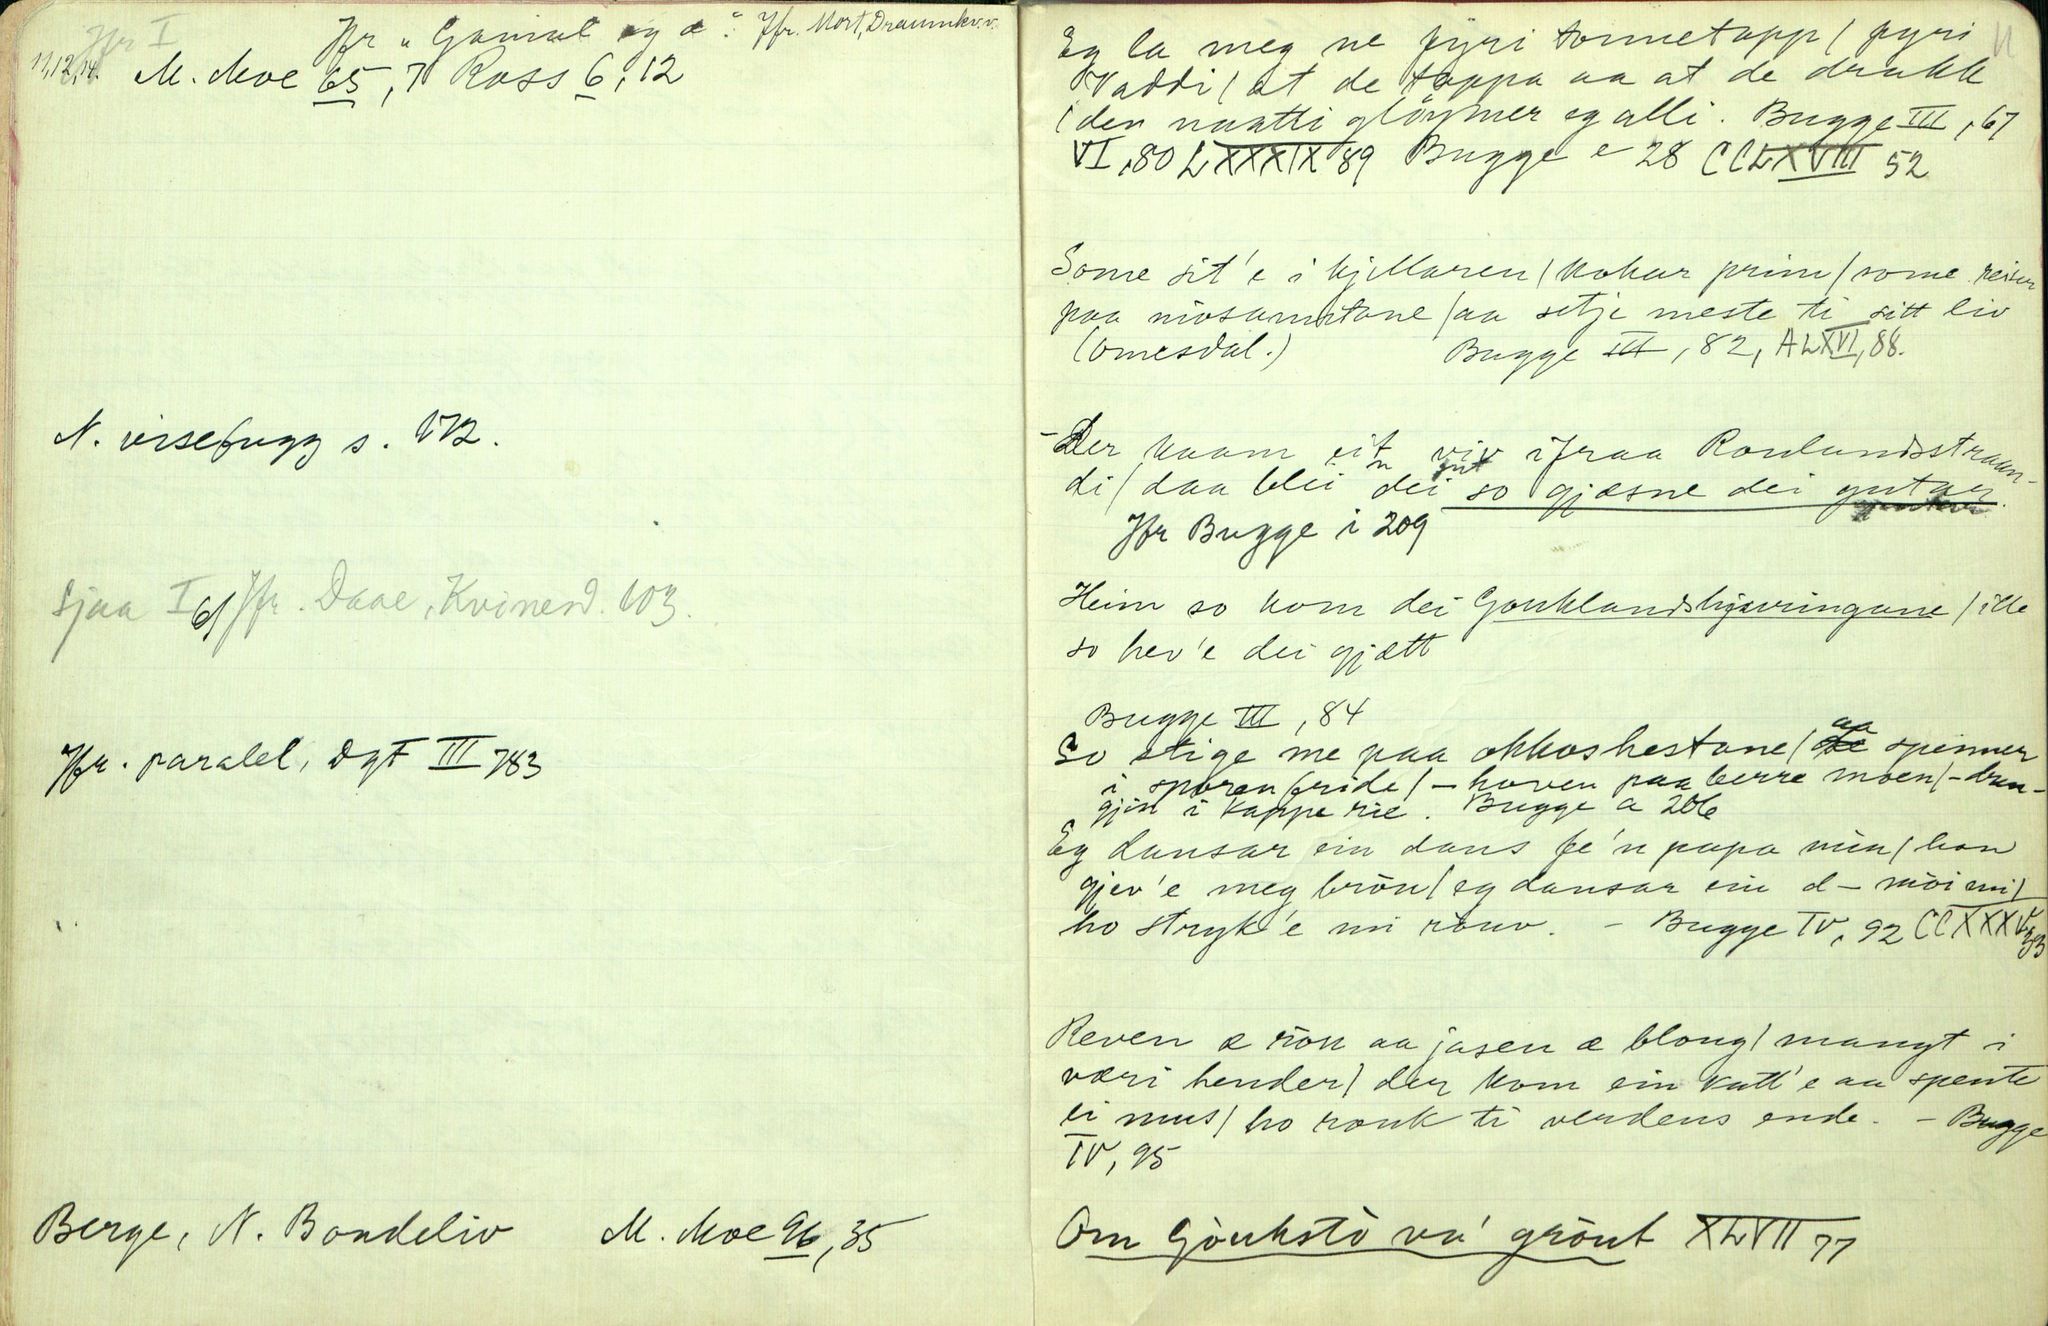 Jfr I
Jfr „Gamal eg æ“ Jfr. Mort, Draumkv. v.
11,12,14. M. Moe 65, 7 Ross 6, 12
N. visebugg s. 172.
Sjaa I 61 Jfr. Daae, Kvinesd. 103.
Jfr. paralel, DgF III 783
Berge, N. Bondeliv M. Moe 96, 35
11
Eg la meg ne fyri tonnetapp / fyri
Vaddi / at de tappa aa at de drakk
/ den naatti glöymer eg alli. Bugge III, 67
VI, 80 LXXXIX 89 Bugge e 28 CCLXVIII 52
Some sit'e i kjellaren / kokar prim / some reiser
paa / aa setje meste ti sitt liv
(Omesdal.) Bugge III, 82, ALXVI, 88.
- Der kaam eit viv ifraa Roulandsstraan-
di / daa blei dei so gjæsne dei gutar.
Jfr Bugge i 209
Heim so kom dei / ille
so hev'e dei gjætt
Bugge III, 84
So stige me paa okkos hestane / aa spenner
i sporen fride / - hoven paa berre moen / - dren-
gjin i kappe rie. Bugge a 206
Eg dansar ein dans fe'n papa min / han
gjev'e meg bròu / eg dansar ein d- mòi mi /
ho stryk'e mi rouv. - Bugge IV, 92 CCXXXV, 33
Reven æ rou aa jasen æ bloug / mangt i
væri hender / der kom ein katt'e aa spente
ei mus / ho rauk ti verdens ende. - Bugge
IV, 95
Om Gòukstò va' grònt XLVII 77